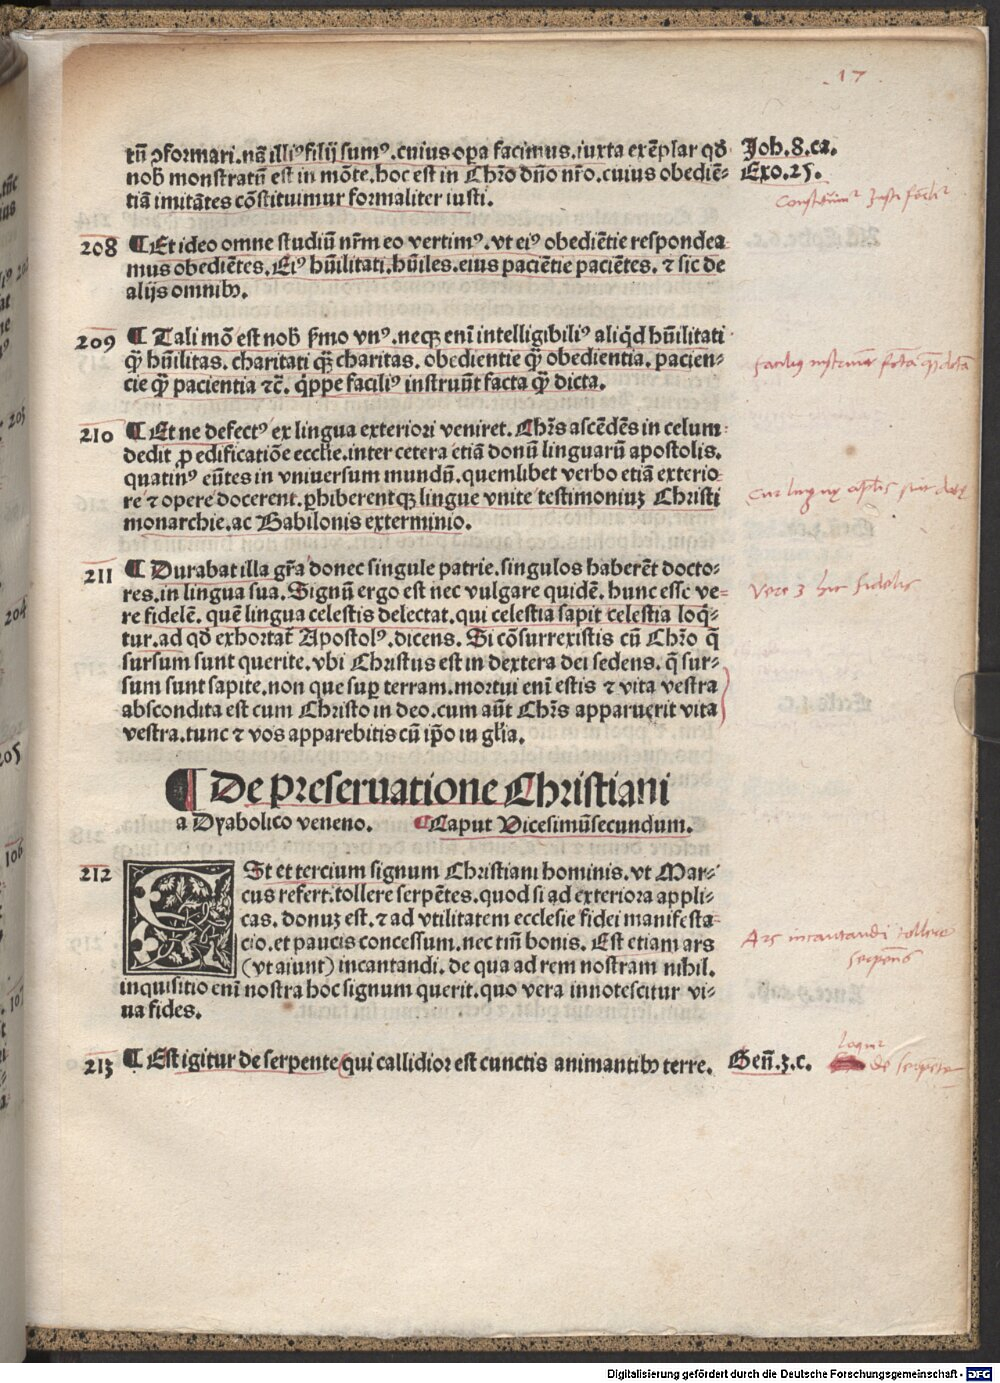 17
tñ ꝯformari. nã illiꝰ filij sumꝰ. cuius oꝑa facimus. iuxta exẽplar qđ Joh. 8. ca.
nob̄ monstratũ est in mõte. hoc est in Chr̄o dño nr̄o. cuius obediẽ⸗ Exo. 25.
tiã imitãtes cõstituimur formaliter iusti.
208 ¶ Et ideo omne studiũ nr̄m eo vertimꝰ. vt eiꝰ obediẽtie respondea
mus obediẽtes. Eiꝰ hũilitati. hũiles. eius paciẽtie paciẽtes. ⁊ sic de
alijs omnibꝫ.
209 ¶ Tali mõ est nob̄ ẜmo vnꝰ. neqꝫ eni intelligibiliꝰ aliq̇d hũilitati
q̃ꝫ hũilitas. charitati q̃ꝫ charitas. obedientie q̃ꝫ obedientia. pacien⸗
cie q̃ꝫ pacientia ⁊c̄. q̇ppe faciliꝰ instruũt facta q̃ꝫ dicta.
facilius instruunt facta quam dicta
210 ¶ Et ne defectꝰ ex lingua exteriori veniret. Chr̄s ascẽdẽs in celum⸗
dedit ꝓ edificatiõe ecclie. inter cetera etiã donũ linguarũ apostolis.
quatinꝰ eũtes in vniuersum mundũ. quemlibet verbo etiã exterio⸗
re ⁊ opere docerent. ꝑhiberentqꝫ lingue vnite testimoniuꝫ Christi
monarchie. ac Babilonis exterminio.
211 ¶ Durabat illa gr̄a donec singule patrie. singulos haberẽt docto⸗
res. in lingua sua. Signũ ergo est nec vulgare quidẽ. hunc esse ve⸗
re fidelẽ. quẽ lingua celestis delectat. qui celestia sapit celestia loq̃⸗
tur. ad qđ exhortat̄ Apostolꝰ. dicens. Si cõsurrexistis cũ Chr̄o q̃
sursum sunt querite. vbi Christus est in dextera dei sedens. q̃ sur⸗
sum sunt sapite. non que suꝑ terram. mortui eni estis ⁊ vita vestra
abscondita est cum Christo in deo. cum aũt Chr̄s apparuerit vita
vestra. tunc ⁊ vos apparebitis cũ ip̄o in gl̄ia.
¶ De preseruatione Christiani
a Dyabolico veneno. ¶ Caput Vicesimũsecundum.
212 ESt et tercium signum Christiani hominis. vt Mar⸗
cus refert. tollere serpẽtes. quod si ad exteriora appli⸗
cas. donuꝫ est. ⁊ ad vtilitatem ecclesie fidei manifesta⸗
cio. et paucis concessum. nec tm̄ bonis. Est etiam ars
(vt aiunt) incantandi. de qua ad rem nostram nihil.
Ars incantandi tollere
serpentes
inquisitio eni nostra hoc signum querit. quo vera innotescitur vi⸗
ua fides.
213 ¶ Est igitur de serpente qui callidior est cunctis animantibꝫ terre. Geñ. 3. c.
de serpente
Digitalisierung gefördert durch die Deutsche Forschungsgemeinschaft - DFG